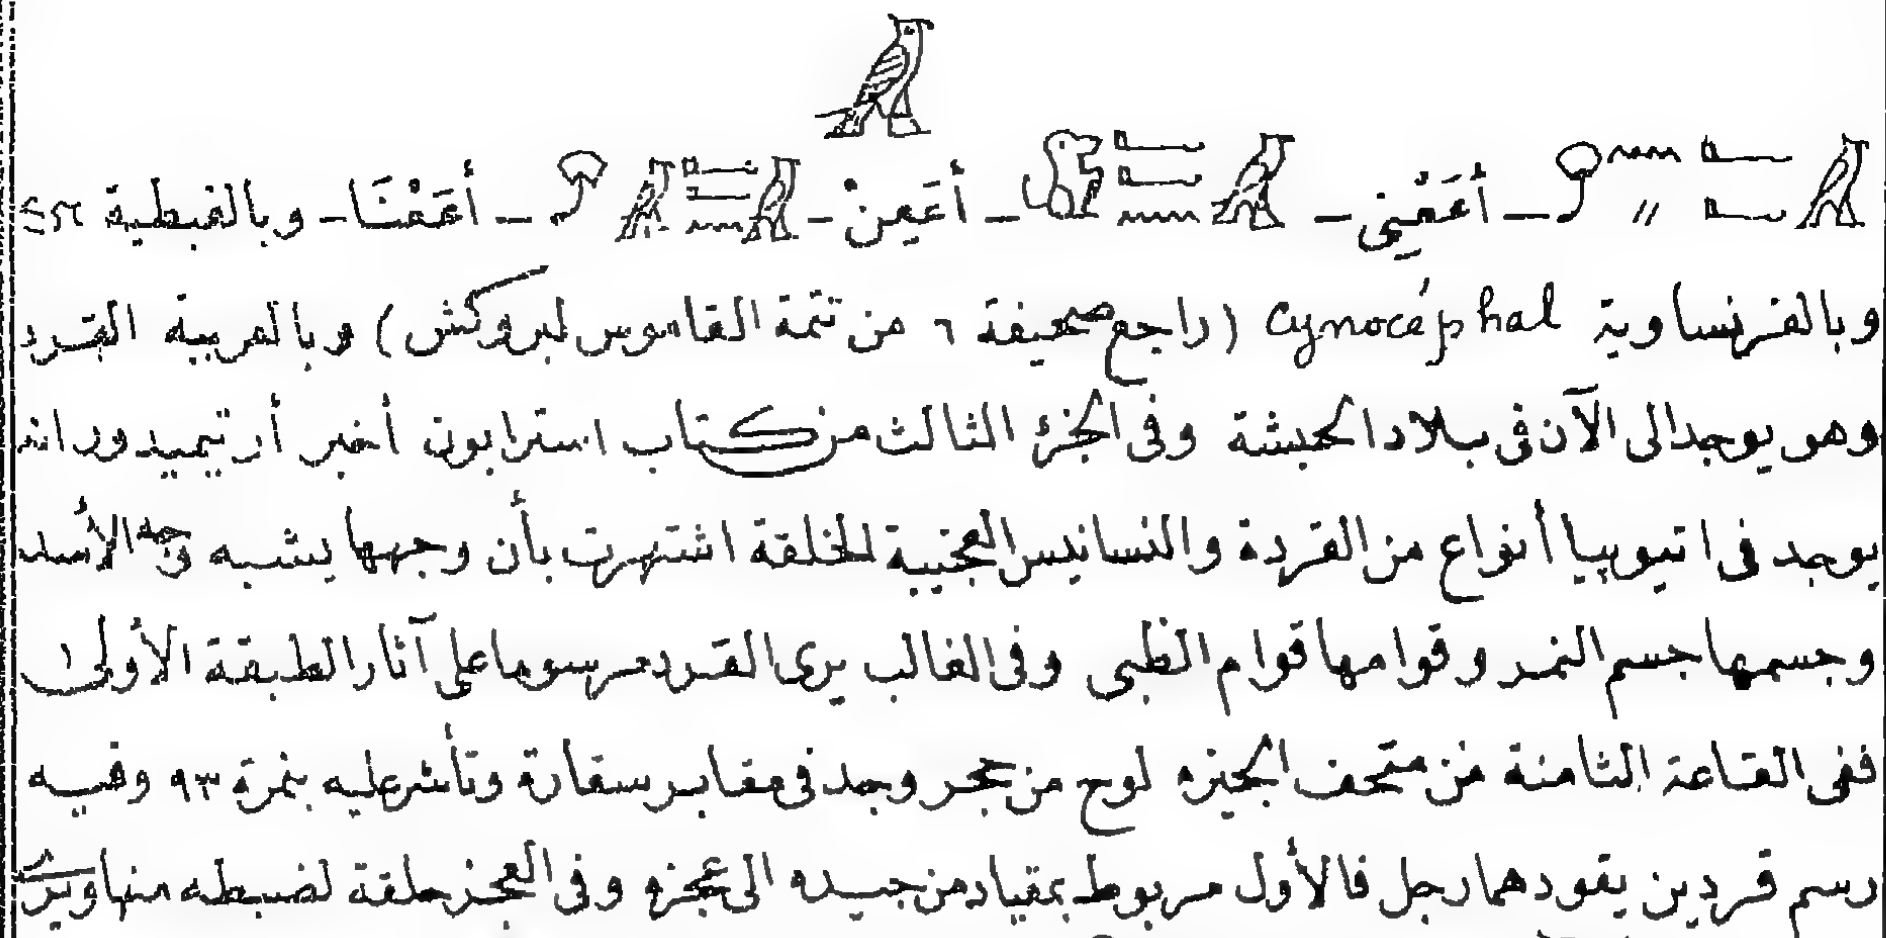 𓄿
أَعَعْنِى — أَعَعِنْ — أَعَعْنَا — وبالقبطية ⲉⲛ
وبالفرنساوية Cynocéphal (راجع صحيفة ٦ من تتمة القاموس لبروكش) وبالعربية القرد
وهو يوجد الى الآن فى بلاد الحبشة وفى الجزء الثالث من كتاب استرابون أخبر أرتيميدور انه
يوجد فى اتيوبيا أنواع من القردة والنسانيس العجيبة الخلقة اشتهرت بأن وجهها يشبه وجه الأسد
وجسمها جسم النمر وقوامها قوام الظبى وفى الغالب يرى القرد مرسوما على آثار الطبقة الأولى
ففى القاعة الثامنة من متحف الجيزه لوح من حجر وجد فى مقابر سقارة وتأشر عليه بنمرة ٩٣ وفيه
رسم قردين يقودهما رجل فالأول مربوط بمقياد من جيده الى عجزه وفى العجز حلقة لضبطه منها ويرى